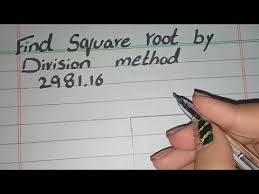 Find Square root by
Division method
2981.16